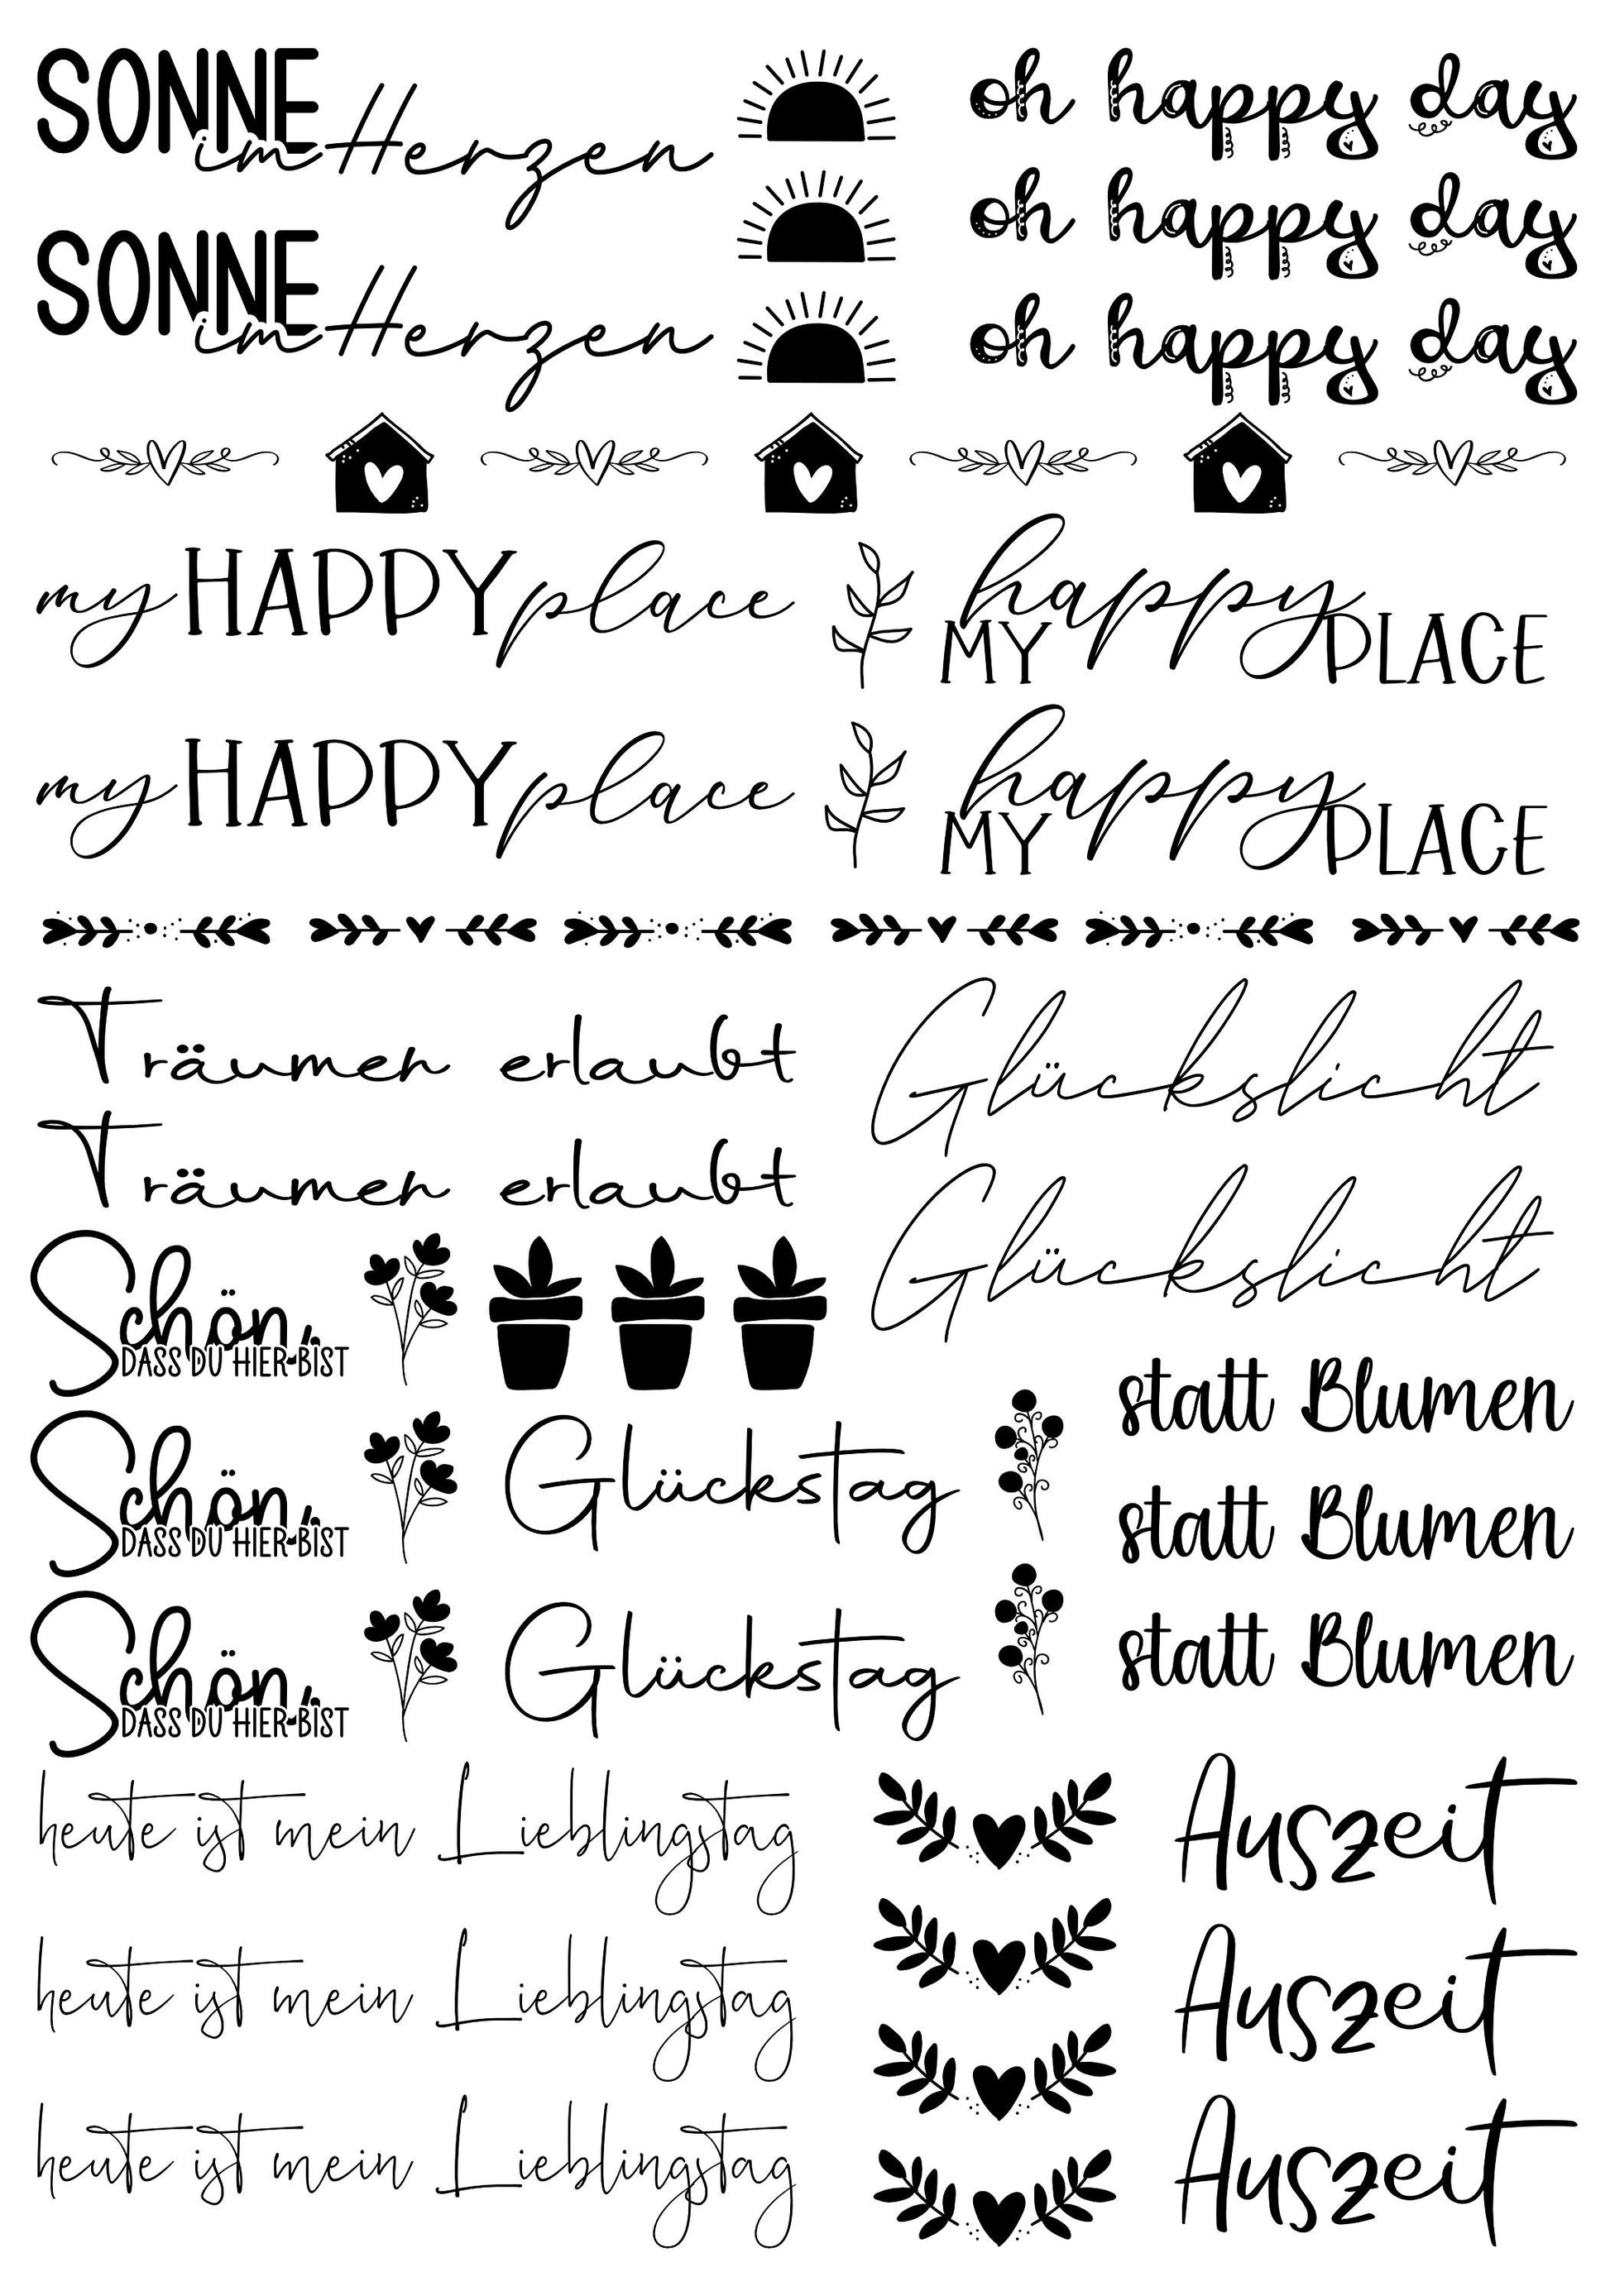 SONNE im Herzen
oh happy day
oh happy day
SONNE im Herzen
oh happy day
my HAPPY place
MY happy PLACE
my HAPPY place
MY happy PLACE
Träumen erlaubt
Glückslicht
Träumen erlaubt
Glückslicht
Schön,
DASS DU HIER BIST
statt Blumen
Schön,
DASS DU HIER BIST
Glückstag
statt Blumen
Schön,
DASS DU HIER BIST
Glückstag
statt Blumen
heute ist mein Lieblingstag
Auszeit
heute ist mein Lieblingstag
Auszeit
heute ist mein Lieblingstag
Auszeit